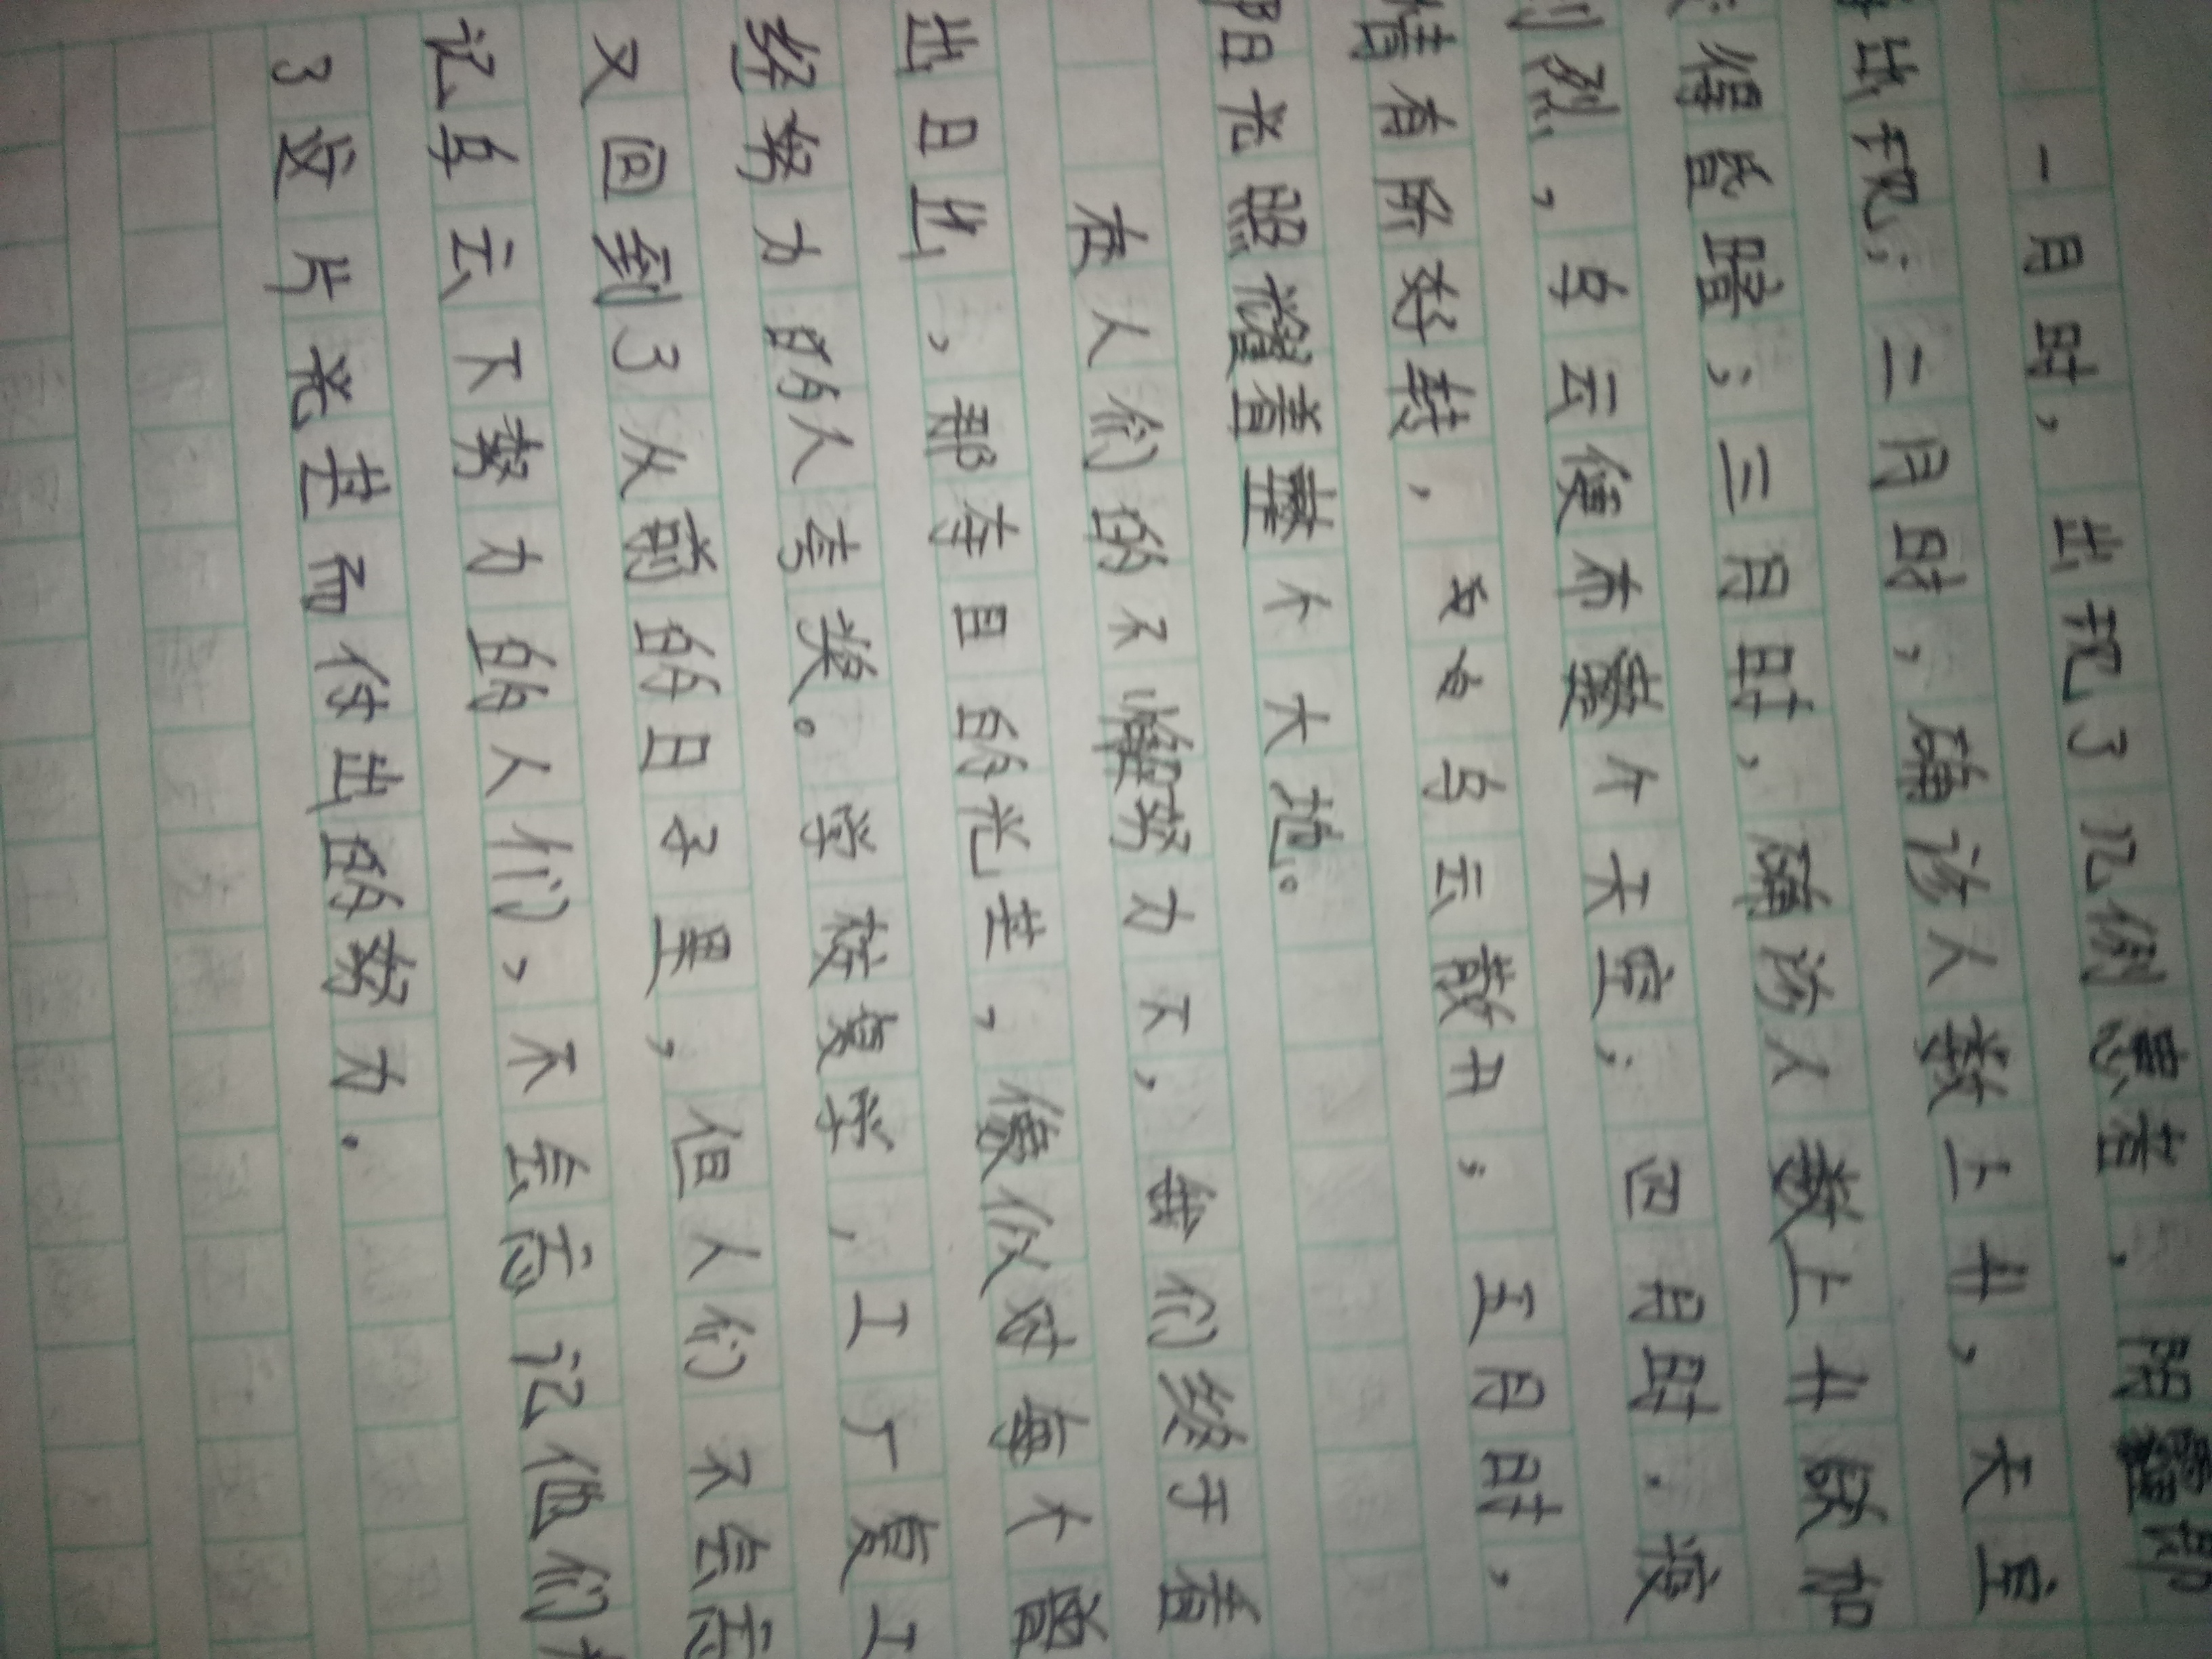 一月时，出现了几例患者，阴霾即
出现；二月时，确诊人数上升，天空
得昏暗；三月时，确诊人数上升愈加
烈，乌云便布整个天空；四月时，疫
情有所好转，乌云散开；五月时，
阳光照耀着整个大地。
在人们的不懈努力下，我们终于看
出日出，那夺目的光芒，像似对每个曾
经努力的人夸奖。学校复学，工厂复工
又回到了从前的日子里，但人们不会忘
记乌云下努力的人们，不会忘记他们
了这片光芒而付出的努力。